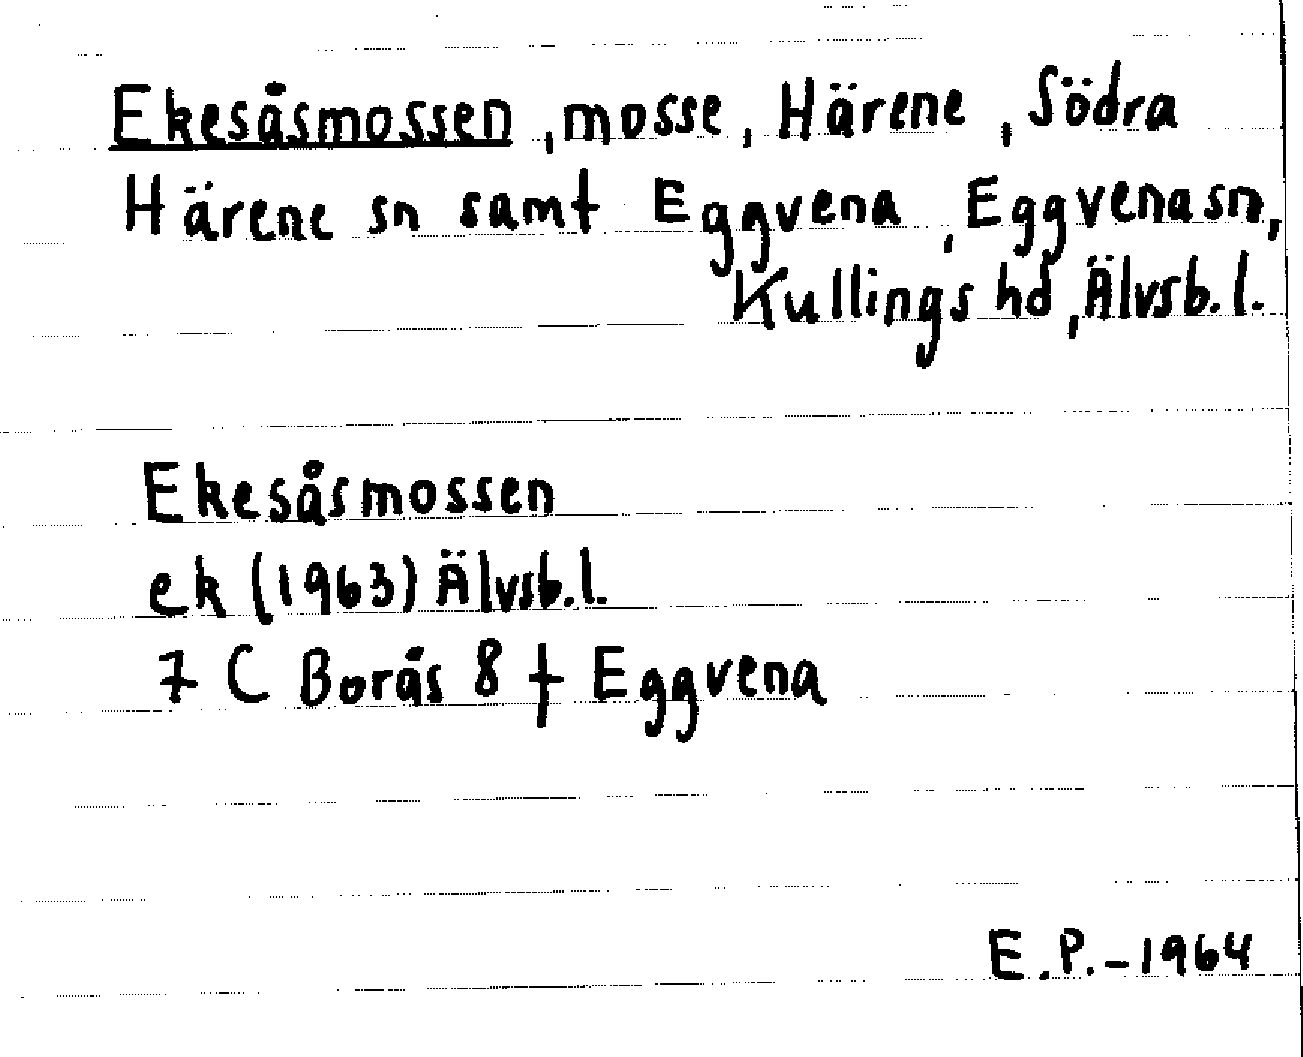 Ekesåsmossen, mosse, Härene, Södra
Härene sn samt Eggvena, Eggvena sn,
Kullings hd, Älvsb. l.
Ekesåsmossen
ek (1963) Älvsb. l.
7 C Borås 8 f Eggvena
E.P. - 1964